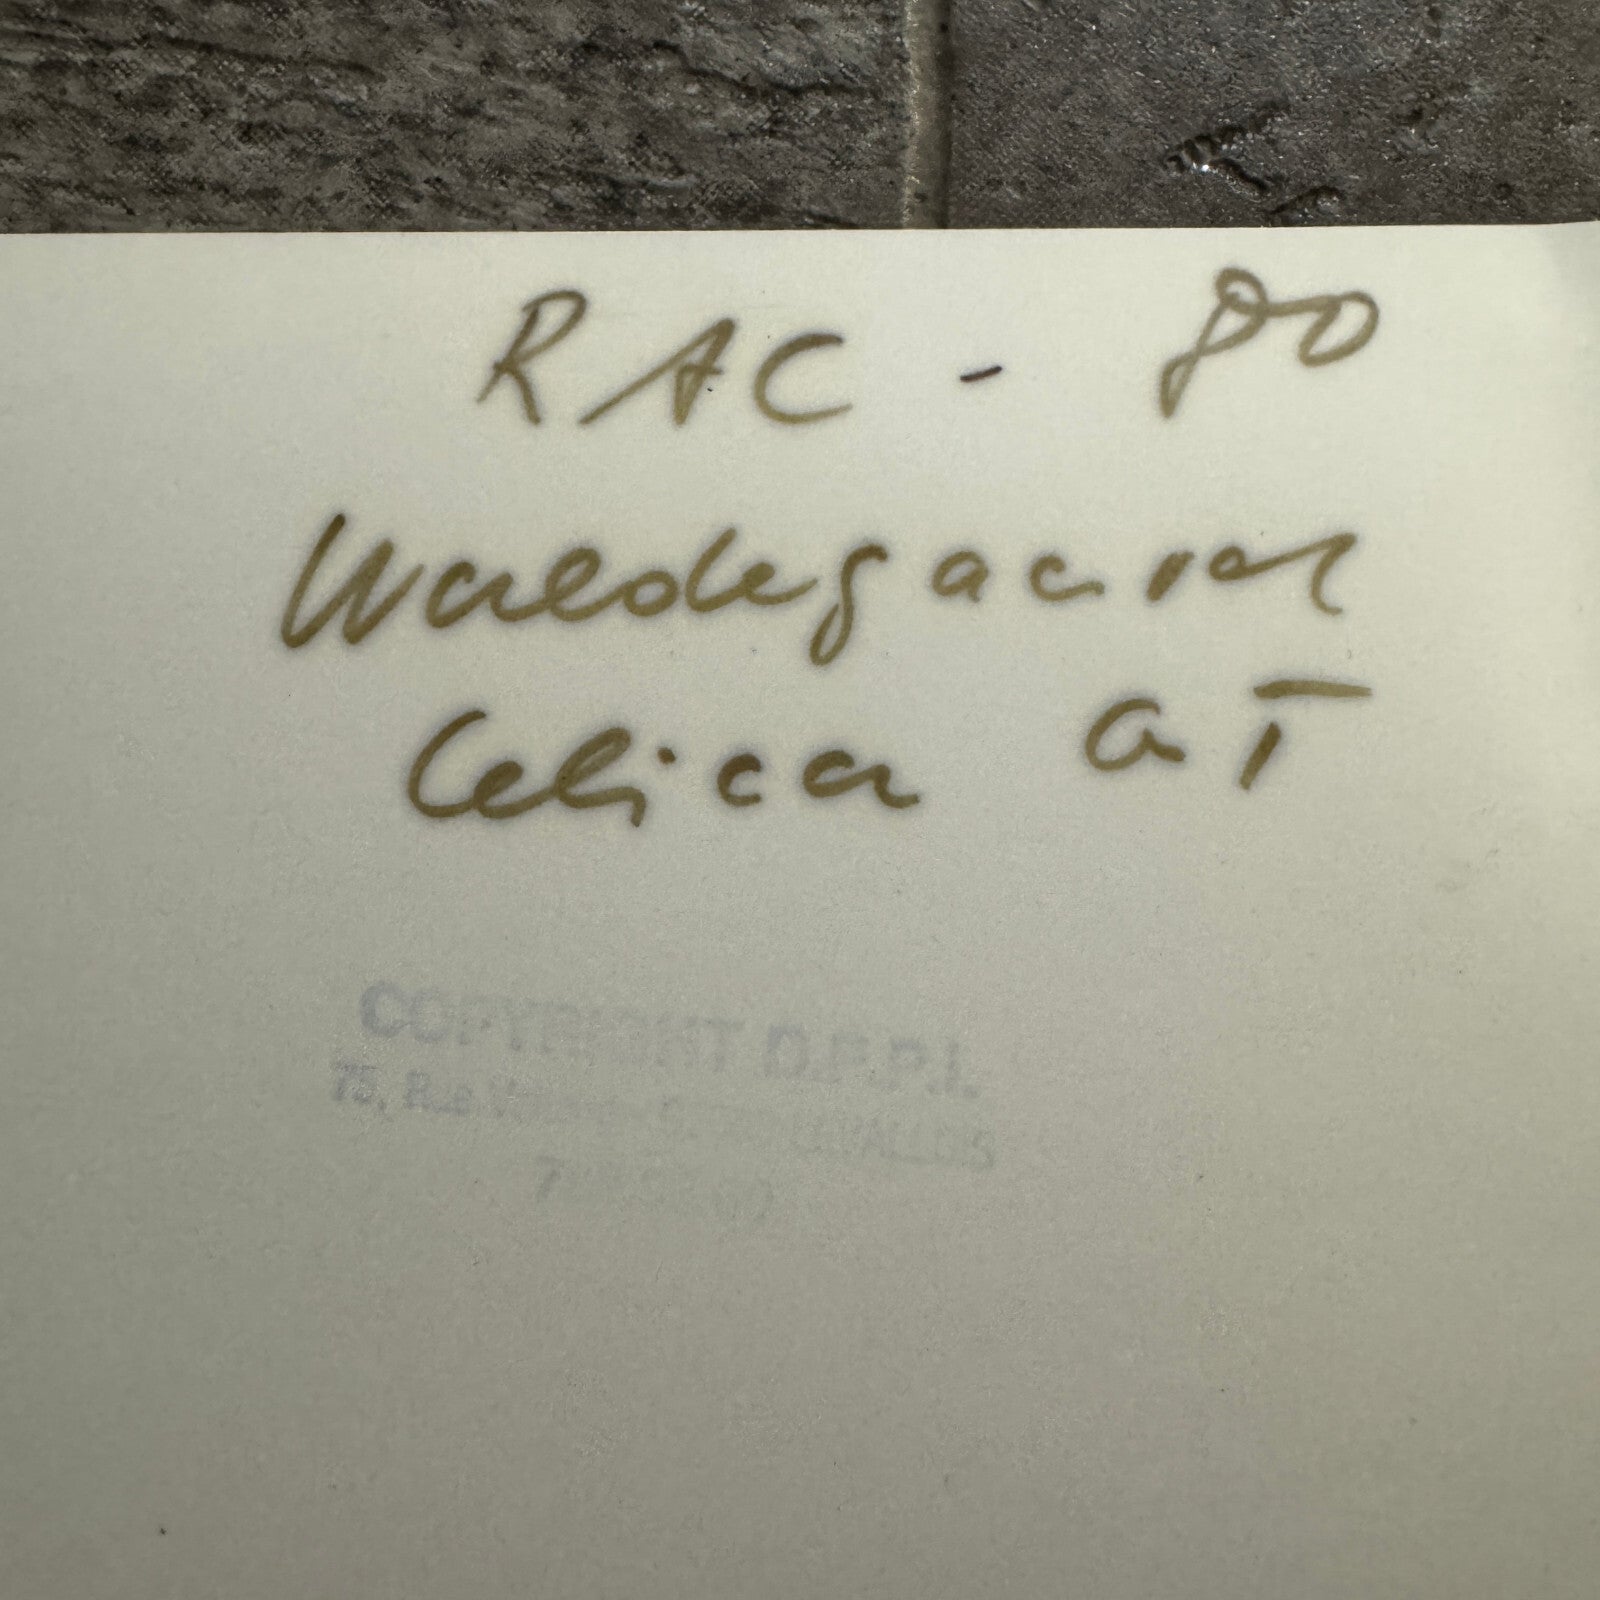 RAC - 80
Waldegaard
Celica GT
COPYRIGHT D.P.P.I.
75, Rue
LEVALLOIS